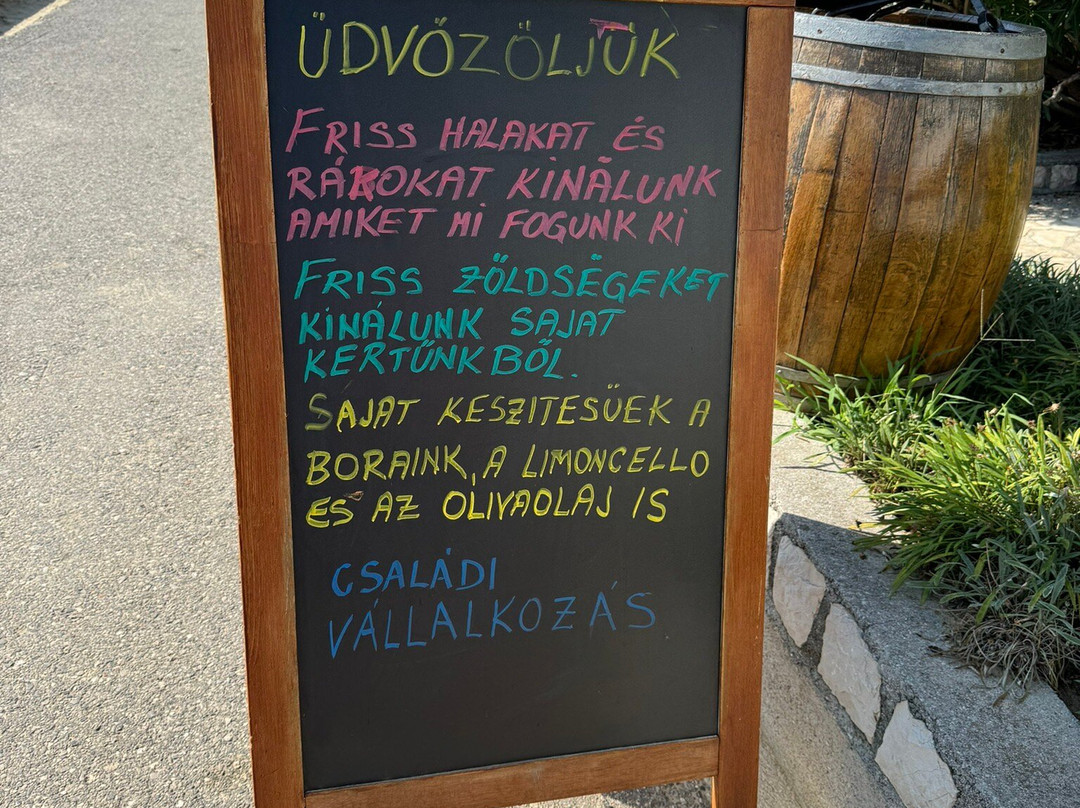 ÜDVÖZÖLJÜK
FRISS HALAKAT ÉS
RÁKOKAT KINÁLUNK
AMIKET MI FOGUNK KI
FRISS ZÖLDSÉGEKET
KINÁLUNK SAJAT
KERTÜNKBŐL.
SAJAT KESZITESÜEK A
BORAINK, A LIMONCELLO
ES AZ OLIVAOLAJ IS
CSALÁDI
VÁLLALKOZÁS